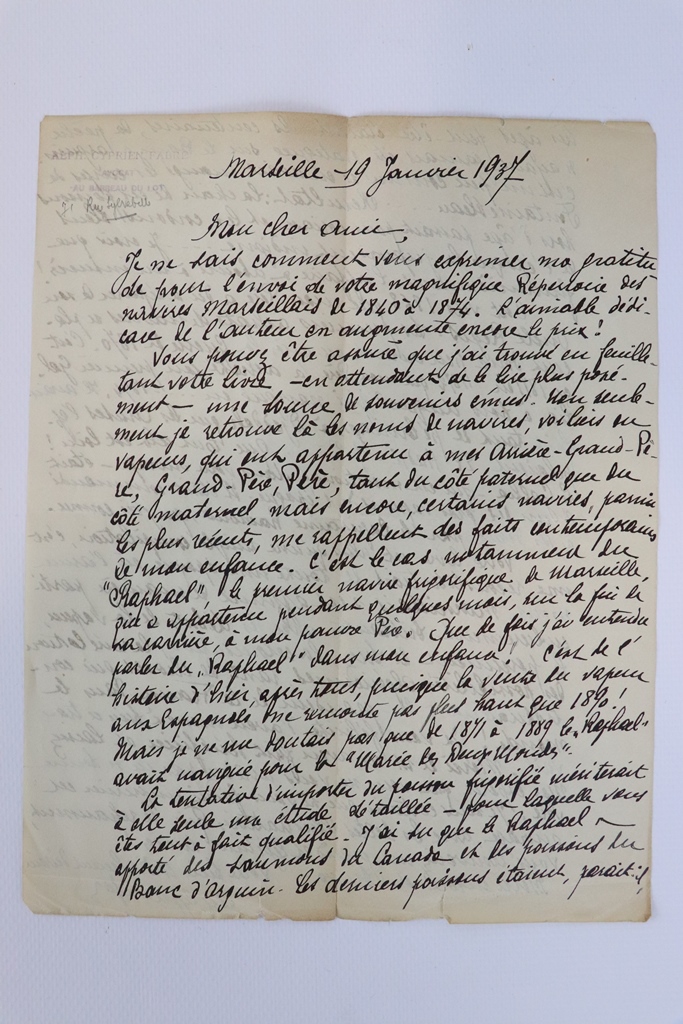 Marseille 19 Janvier 1937
Mon cher ami,
Je ne sais comment vous exprimer ma gratitu
de pour l'envoi de votre magnifique Répertoire des
navires Marseillais de 1840 à 1874. L'aimable dédi-
cace de l'auteur en augmente encore le prix !
Vous pouvez être assuré que j'ai trouvé en feuille-
tant votre livre – en attendant de le lire plus posé-
ment – une source de souvenirs émus. Non seule-
ment je retrouve là les noms de navires, voiliers ou
vapeurs, qui ont appartenu à mes Arrière-Grand-Pè-
re, Grand-Père, Père, tant du côté paternel que du
côté maternel mais encore, certains navires, parmi
les plus récents, me rappellent des faits contemporains
de mon enfance. C'est le cas notamment du
"Raphael" le premier navire frigorifique de Marseille,
qui a appartenu pendant quelques mois, sur la fin de
sa carrière, à mon pauvre Père. Que de fois j'ai entendu
parler du "Raphael" dans mon enfance ! C'est de l'
histoire d'hier, après tout, puisque la vente du vapeur
aux Espagnols ne remonte pas plus haut que 1890 !
Mais je ne me doutais pas que de 1871 à 1889 le "Raphael"
avait navigué pour la "Marie des Deux Mondes".
La tentative d'importer du poisson frigorifié mériterait
à elle seule une étude détaillée – pour laquelle vous
êtes tout à fait qualifié. J'ai su que le Raphael a
apporté des saumons du Canada et des poissons du
Banc d'Arguin. Les derniers poissons étaient, paraît-il,